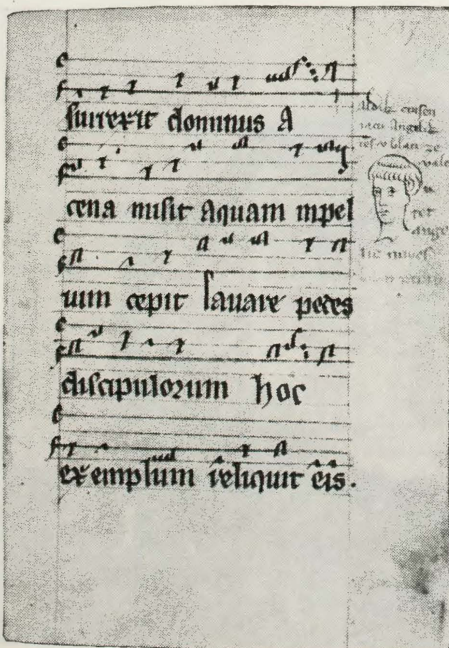 surrexit dominus A
cena misit aquam inpel
uim cepit lauare pedes
discipulorum hoc
exemplum reliquit eis.